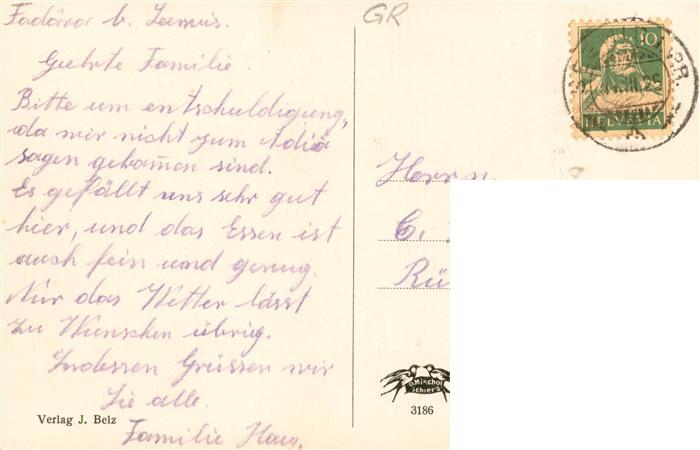 Fadära b. Seewis.
Geehrte Familie.
Bitte um entschuldigung,
da wir nicht zum Adiö
sagen gekommen sind.
Es gefällt uns sehr gut
hier, und das Essen ist
auch fein und genug.
Nur das Wetter lässt
zu Wünschen übrig.
Indessen Grüssen wir
Sie alle.
Familie
Verlag J. Belz
GR
10
HELVETIA
Herrn
C.
Rü
D. Mischol
Schiers
3186